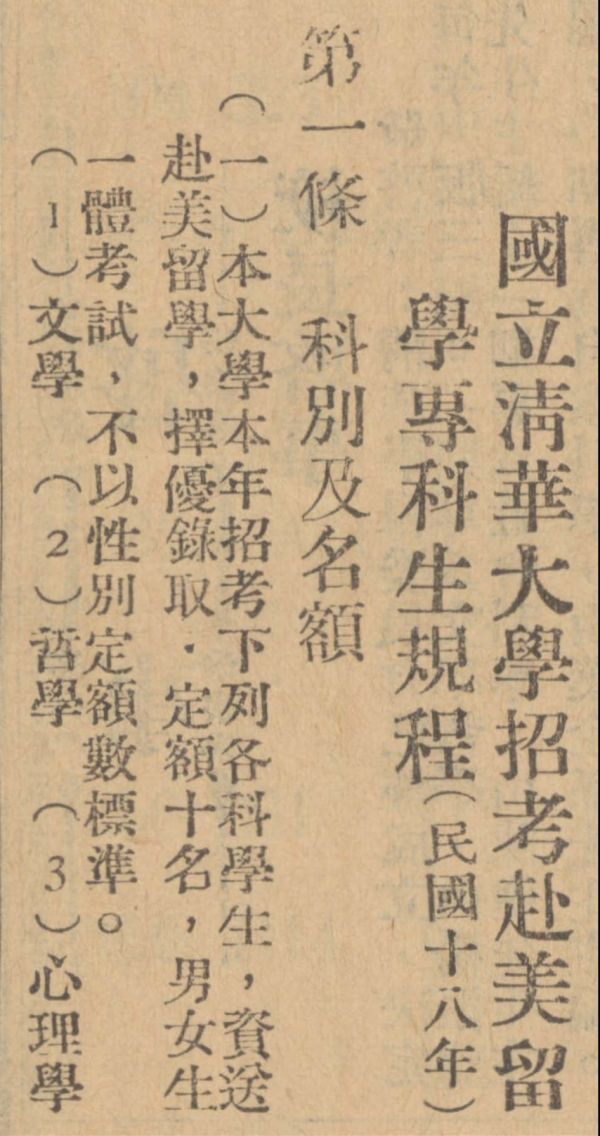 國立淸華大學招考赴美留
學專科生規程(民國十八年)
第一條 科別及名額
(一)本大學本年招考下列各科學生,資送
赴美留學,擇優錄取.定額十名,男女生
一體考試,不以性別定額數標準。
(1)文學 (2)哲學 (3)心理學